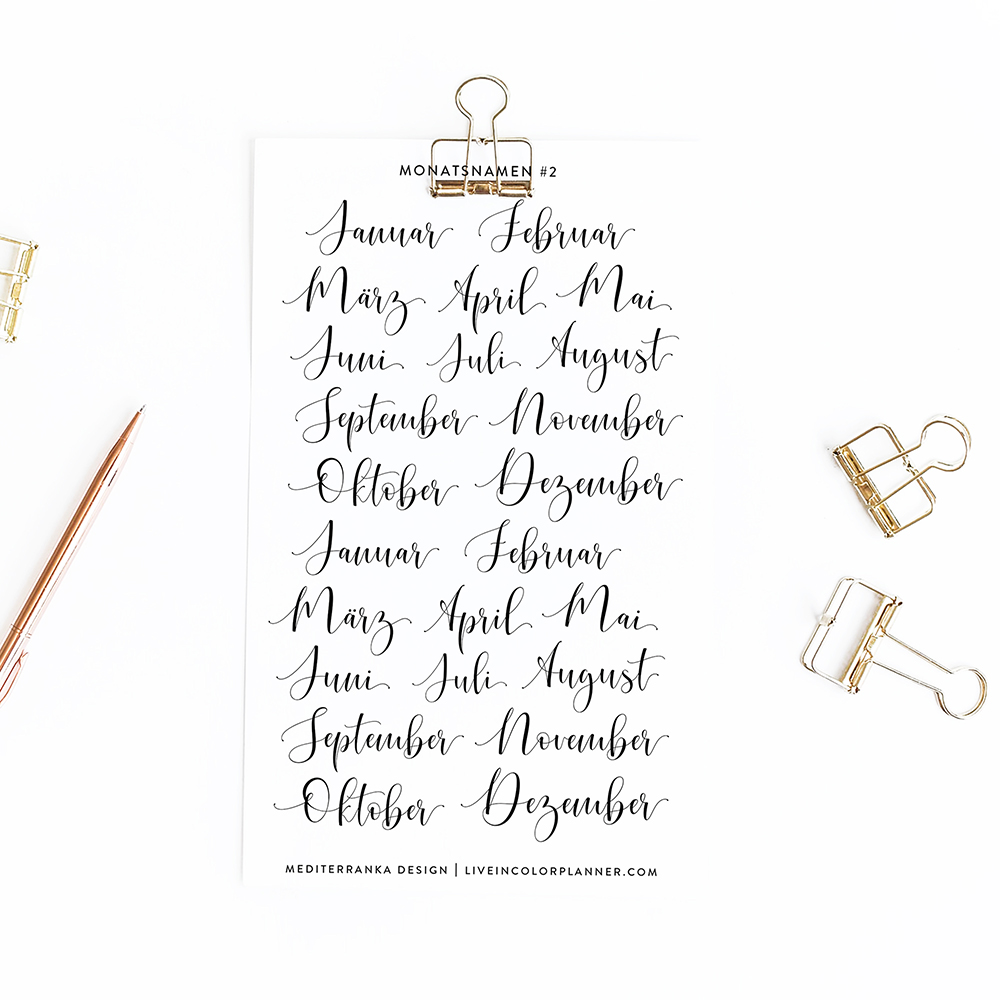 MONATSNAMEN #2
Januar Februar
März April Mai
Juni Juli August
September November
Oktober Dezember
Januar Februar
März April Mai
Juni Juli August
September November
Oktober Dezember
MEDITERRANKA DESIGN | LIVEINCOLORPLANNER.COM